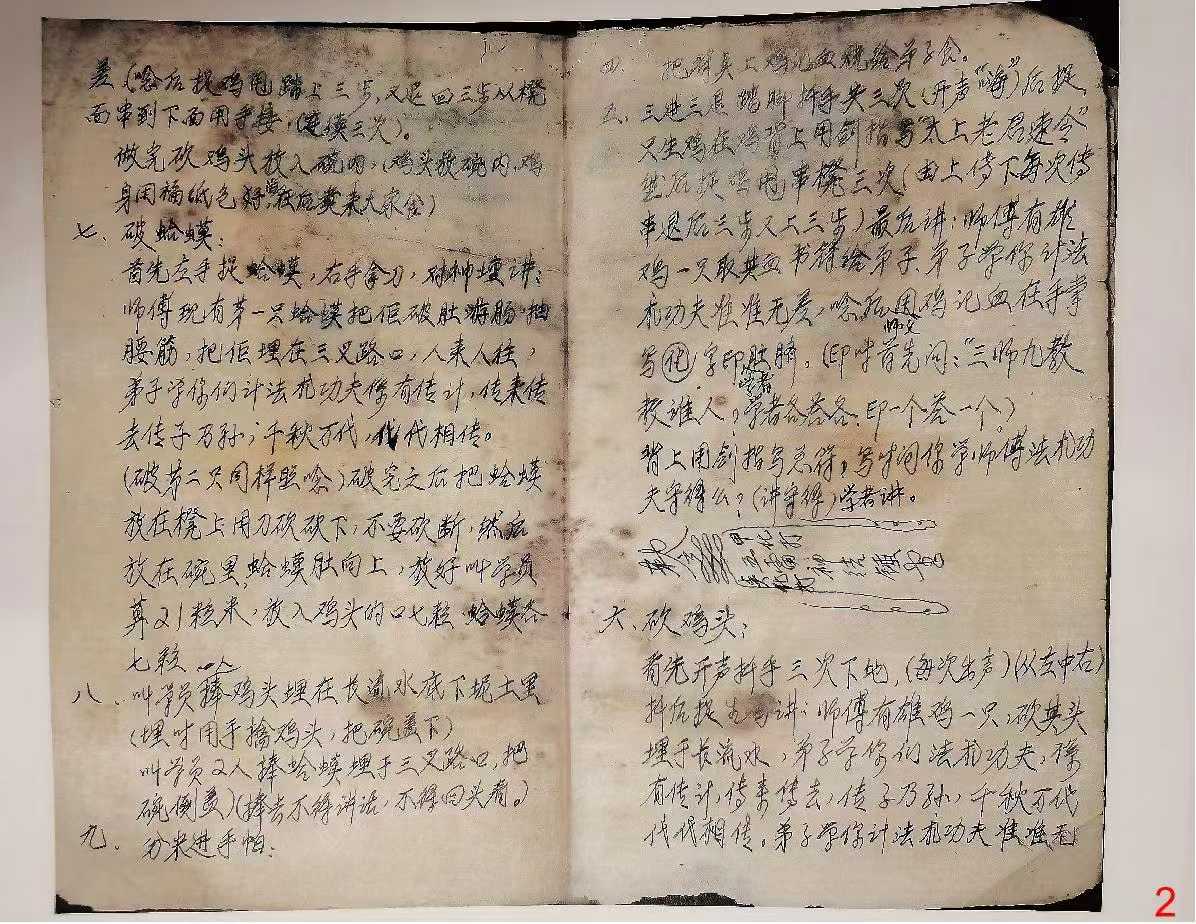 四、把额头上鸡记血脱给弟子食。
五、三进三退踏脚抖手尖三次(开声“嗨”)后捉
只生鸡在鸡背上用剑指写“太上老君速令”
然后捉鸡甩串櫈三次(由上传下每次传
串退后三步又上三步)最后讲:师傅有雄
鸡一只取其血书符给弟子、弟子学你计法
扎功夫准准无差,念后用鸡记血在手掌
师父
写化字印肚脐。(印时首先问:“三师九教
学者
教谁人?学者各答各、印一个答一个)
背上用剑指写总符,写时问你学师傅法扎功
夫守得么?(讲守得)学者讲。
六、砍鸡头:
首先开声抖手三次下地,(每次出声)(从左中右)
抖后捉鸡讲:师傅有雄鸡一只,砍其头
埋于长流水,弟子学你们法扎功夫,你
有传计,传来传去,传子乃孙,千秋万代
代代相传。弟子学你计法扎功夫准准无
差(念后捉鸡甩踏上三步,又退回三步从櫈
面串到下面用手接,(连续三次)。
做完砍鸡头放入碗内,(鸡头放碗内,鸡
身用福纸包好,最后煲来大家食)
七、破蛤蟆:
首先左手捉蛤蟆,右手拿刀,对神坛讲:
师傅现有第一只蛤蟆把佢破肚游肠抽
腰筋,把佢埋在三叉路口,人来人往,
弟子学你们计法扎功夫你有传计,传来传
去传子乃孙,千秋万代,代代相传。
(破第二只同样照念)破完之后把蛤蟆
放在櫈上用刀砍砍下,不要砍断,然后
放在碗里,蛤蟆肚向上,放好叫学员
算21粒米,放入鸡头的口七粒,蛤蟆各
七粒
八、叫学员一人捧鸡头埋在长流水底下坭土里
(埋时用手擒鸡头,把碗盖下)
叫学员2人捧蛤蟆埋于三叉路口,把
碗倒盖)(捧去不得讲话,不得回头看。)
九、分米进手帕:
2